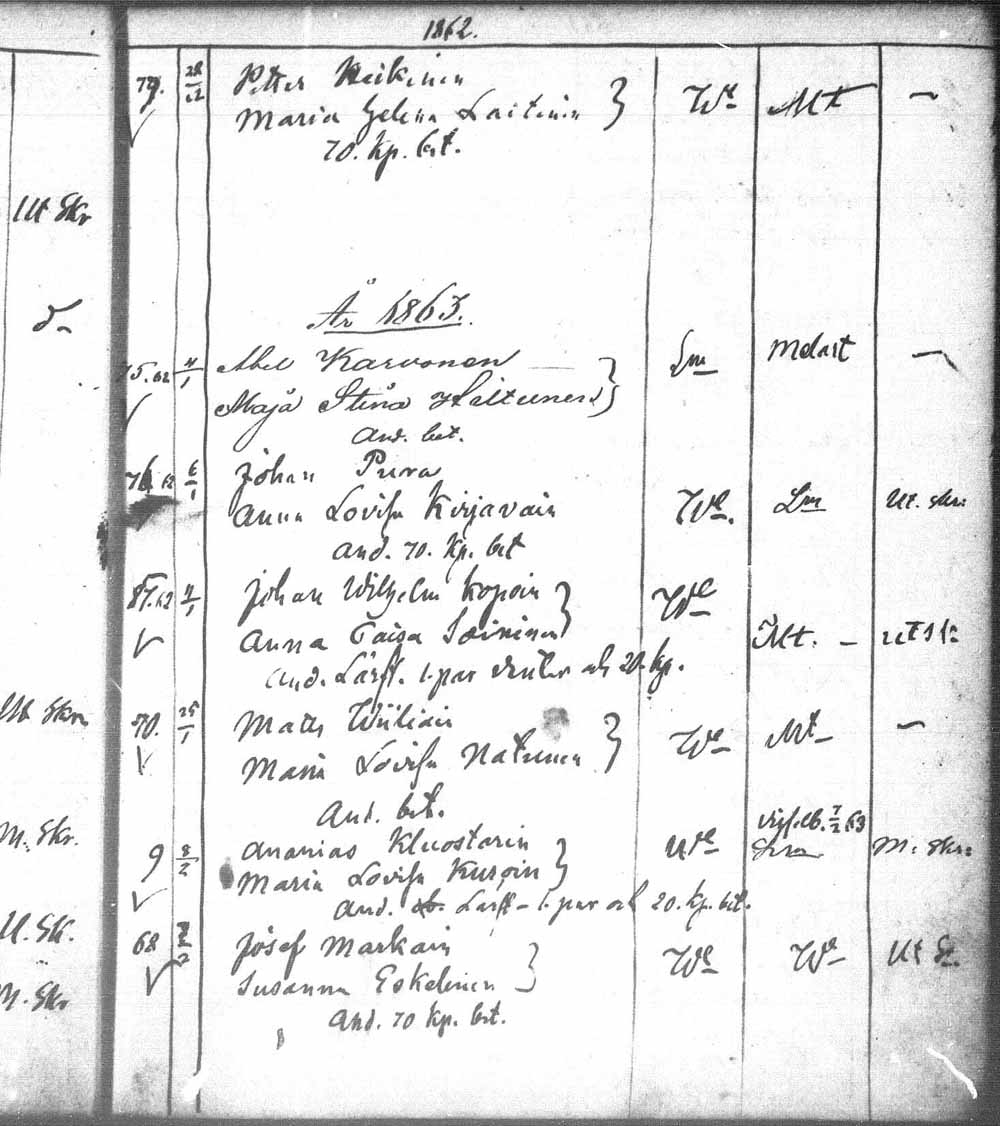 1862.
79. 28/12 Petter Heikinen
Maria Helena Laitinen } We Mt —
70. Kp. bet.
Ut Skr
År 1863.
75.62 4/1 Abel Karvonen
Maja Stina Hiltunen } Lm Melart —
And. bet.
76.62 6/1 Johan Purra
Anna Lovisa Kirjavain We. Lm Ut. Skr:
And. 70. Kp. bet
85.62 11/1 Johan Wilhelm Kopoin } We
Anna Caisa Soininen Mt. — ut sk:
And. Lärft. 1. par och 20. Kp.
Ut Skr
70. 25/1 Mats Wiiliain
Maria Lovisa Natunen } We Mt —
And. bet.
M. Skr.
7/2 63
9 8/2 Ananias Kluostarin ute M. Skr:
Maria Lovisa Kuroin }
And. Lärft — 1. par och 20. Kp. bet.
U. Sk.
68 Josef Markain
Susanna Eskelinen } We We Ut Sk.
M. Skr
And. 70 Kp. bet.